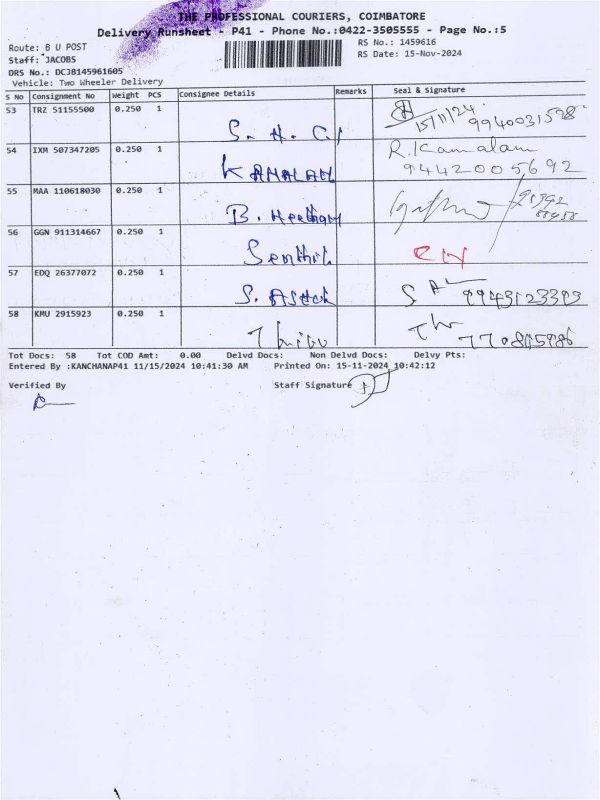 THE PROFESSIONAL COURIERS, COIMBATORE
Delivery Runsheet - P41 - Phone No.:0422-3505555 - Page No.:5
Route: B U POST RS No.: 1459616
Staff: JACOBS RS Date: 15-Nov-2024
DRS No.: DCJB145961605
Vehicle: Two Wheeler Delivery
S No Consignment No Weight PCS Consignee Details Remarks Seal & Signature
53 TRZ 51155500 0.250 1
15/11/24
S. H. 9940031598
54 IXM 507347205 0.250 1 R. Kamalam
KAMALAM 9442005692
55 MAA 110618030 0.250 1
B.
56 GGN 911314667 0.250 1
Senthil
57 EDQ 26377072 0.250 1
S. Ashok 9943123393
58 KMU 2915923 0.250 1
Tot Docs: 58 Tot COD Amt: 0.00 Delvd Docs: Non Delvd Docs: Delvy Pts:
Entered By :KANCHANAP41 11/15/2024 10:41:30 AM Printed On: 15-11-2024 10:42:12
Verified By Staff Signature